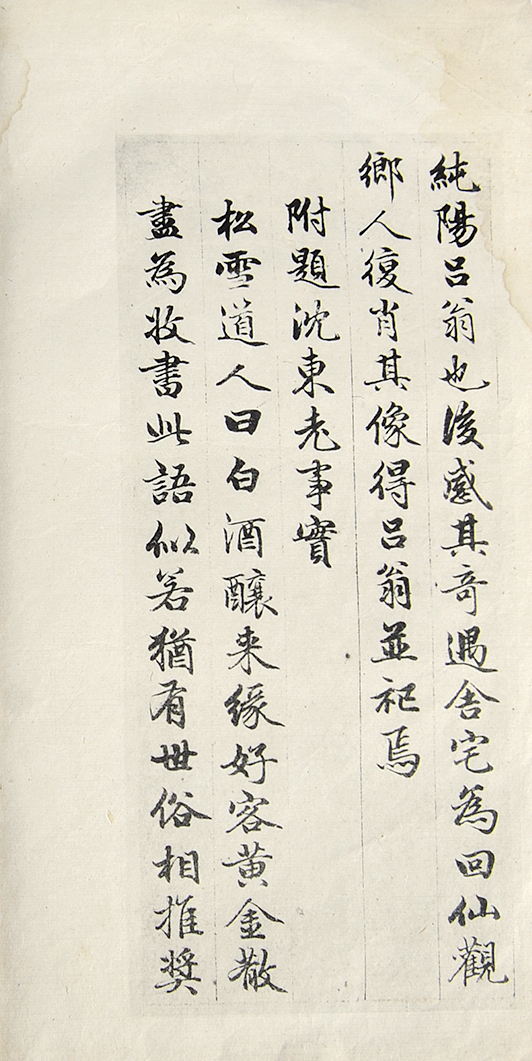 純陽呂翁也後感其奇遇舍宅為回仙觀
鄉人復肖其像得呂翁並祀焉
附題沈東老事實
松雪道人曰白酒釀来緣好客黄金散
盡為收書此語似若猶有世俗相推奖